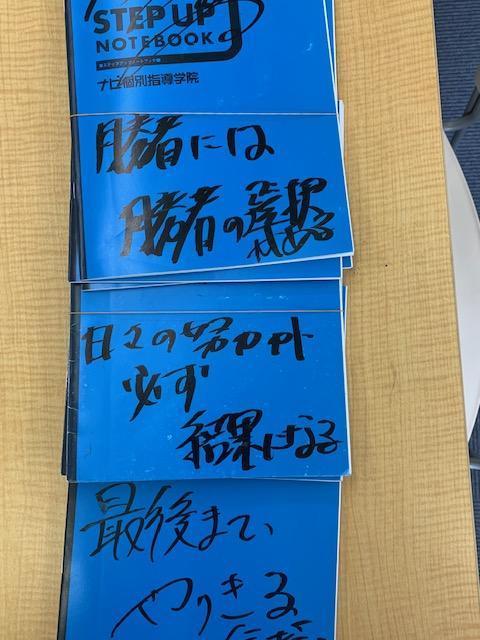 STEP UP
NOTEBOOK
ナビ個別指導学院
勝者には
勝者の
ある
日々の努力が
必ず
結果になる
最後まで、
やりきる